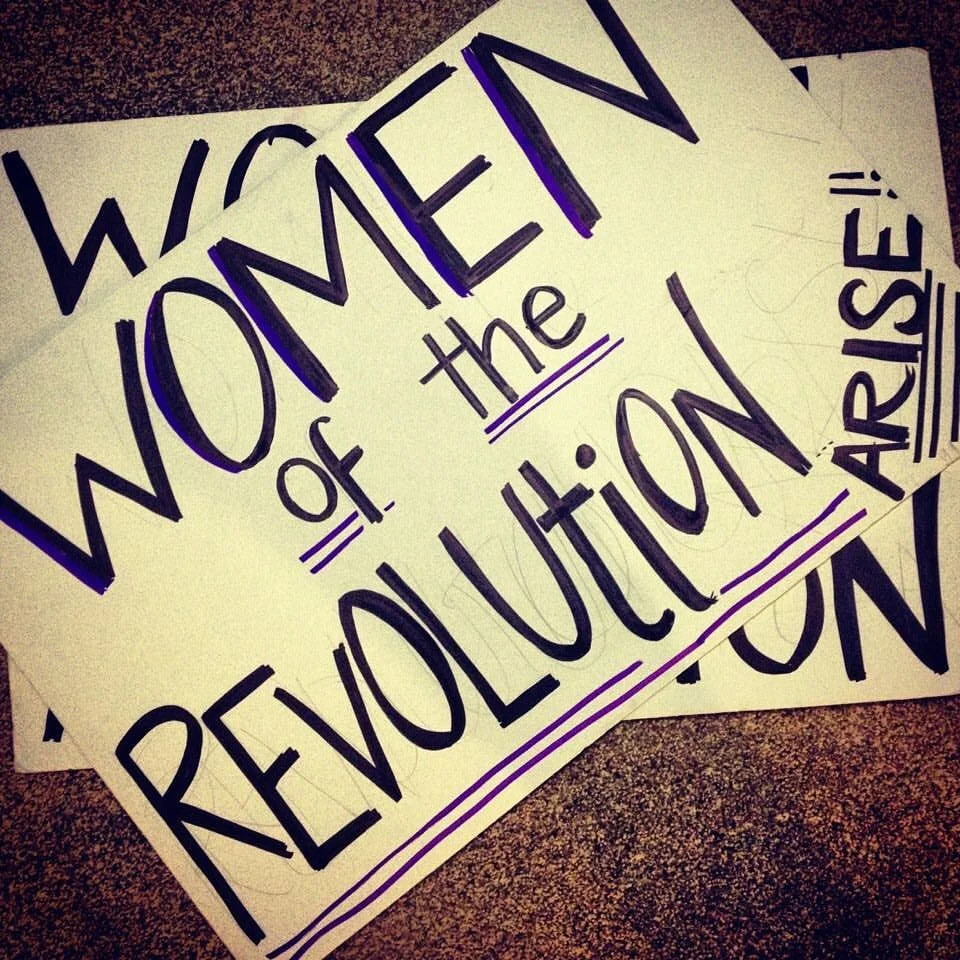 WOMEN
of the
REVOLUtiON
ARISE!!
WO
ON